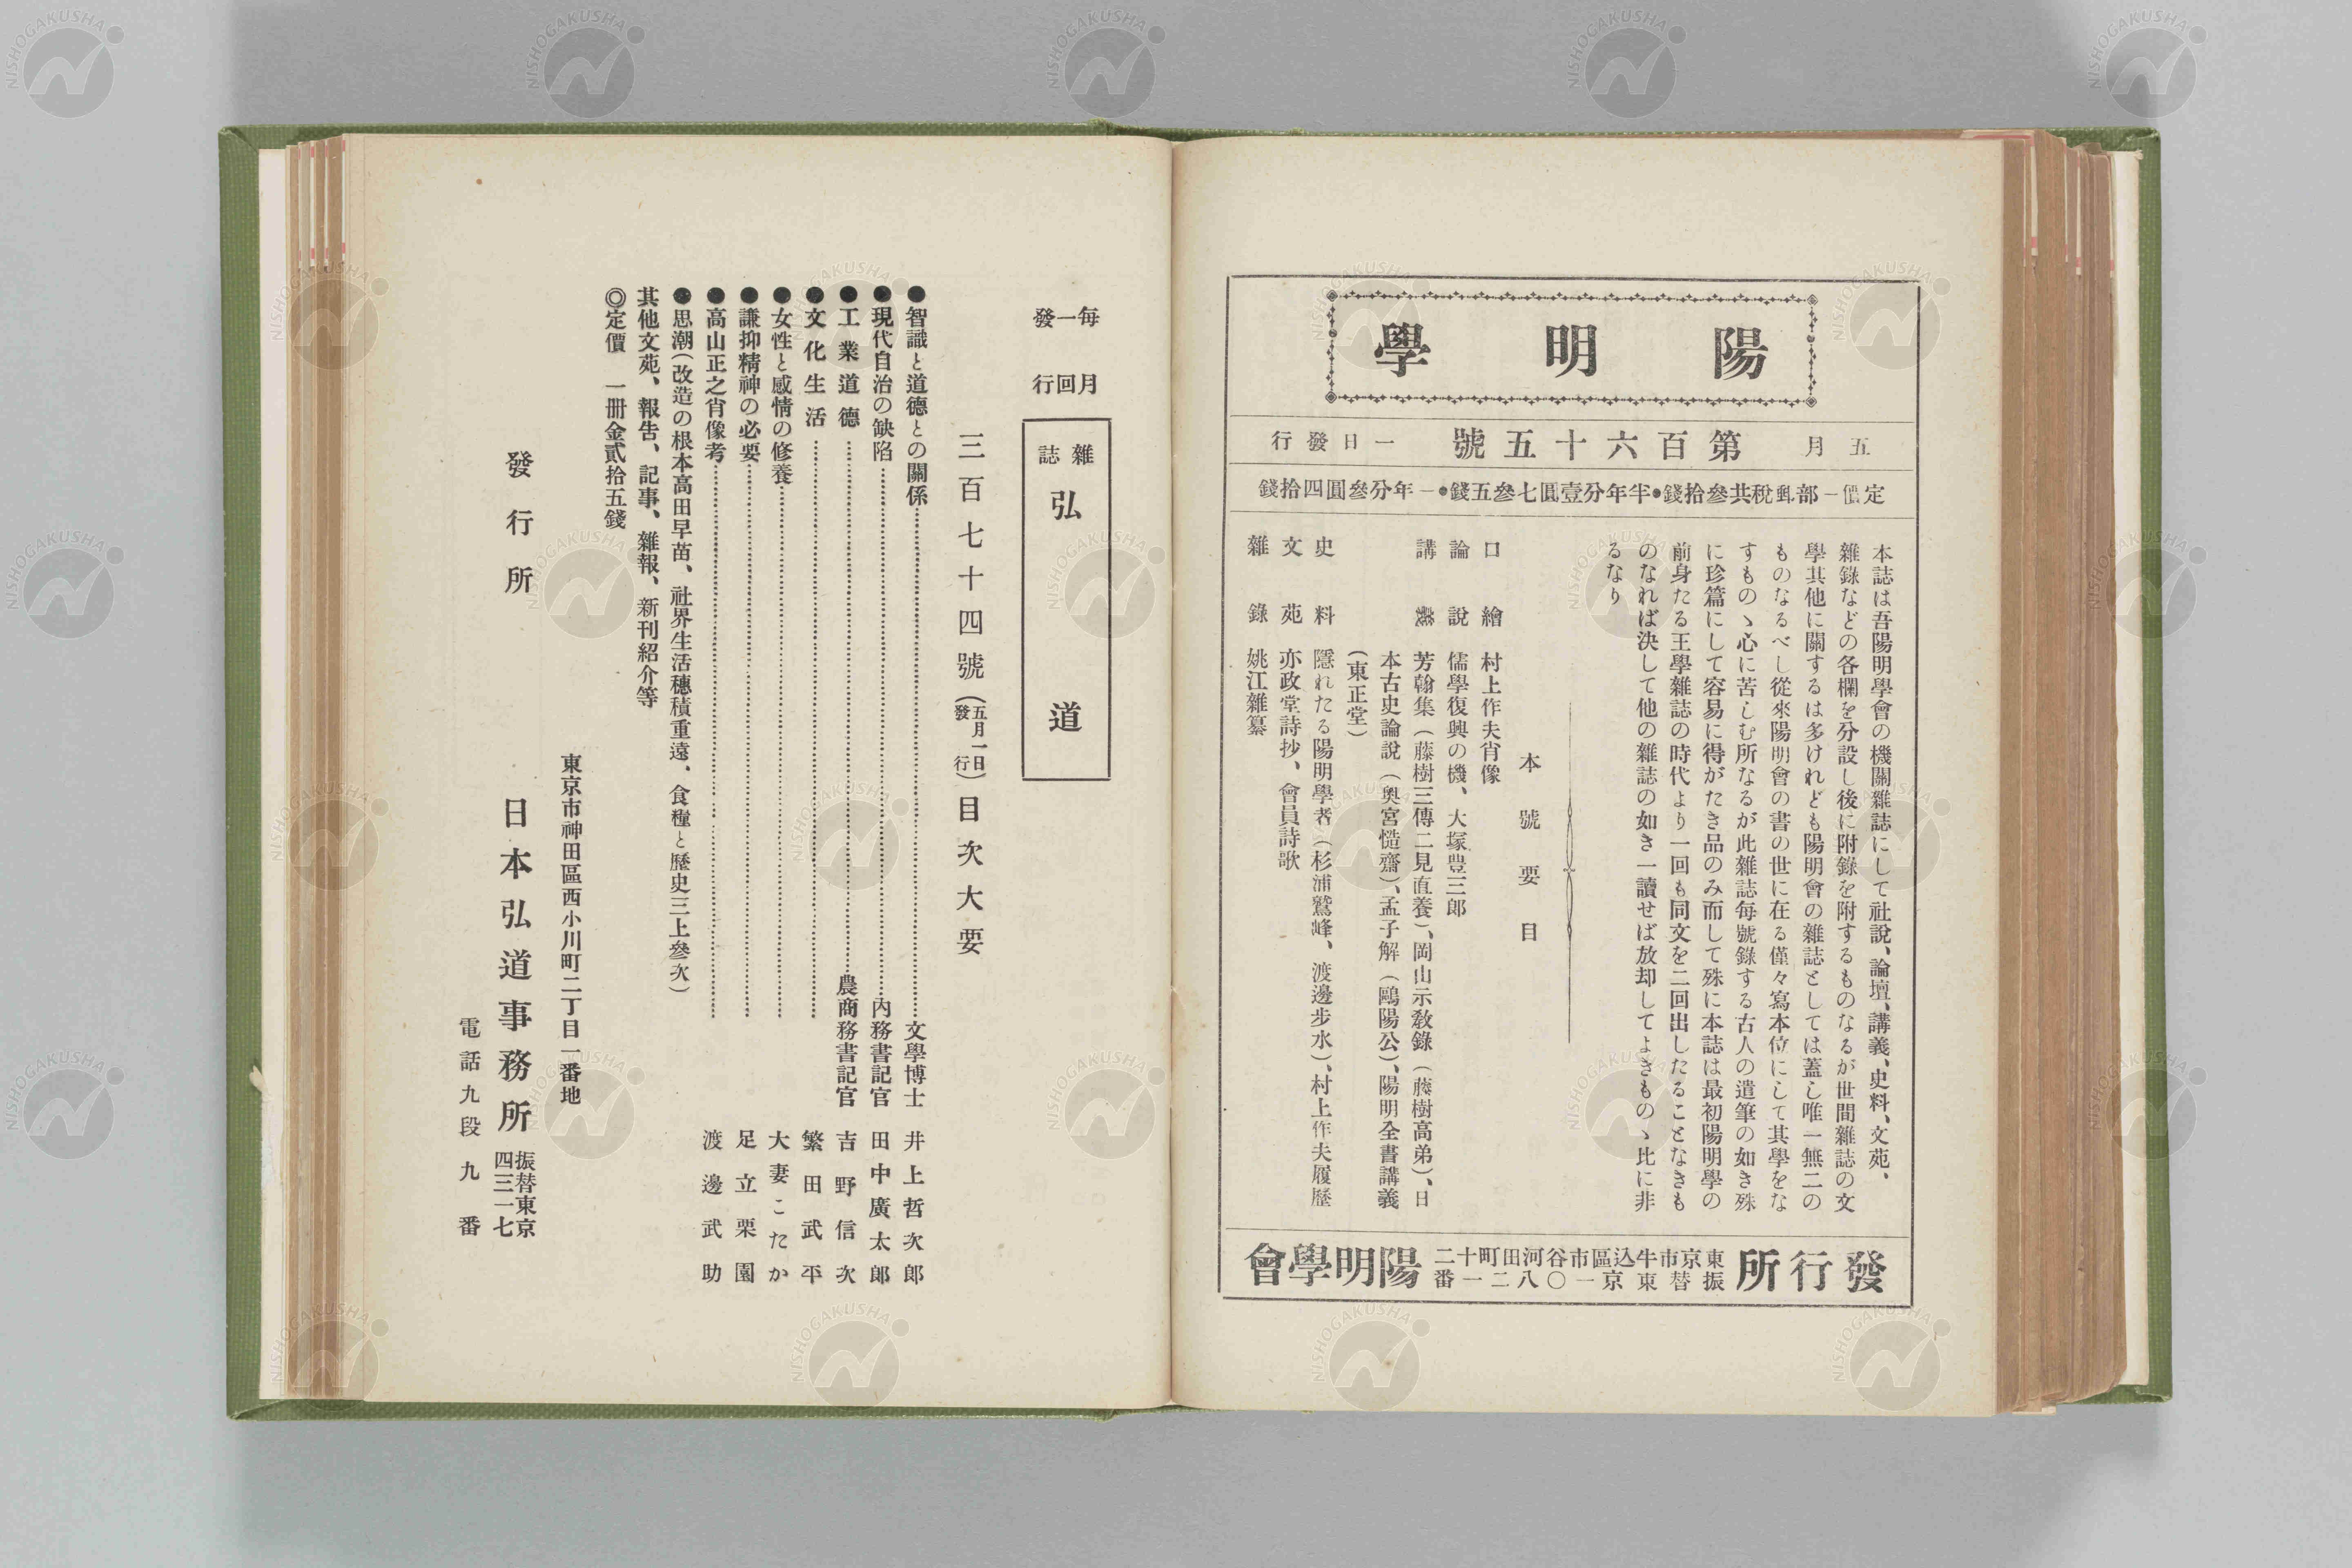 陽明學
五月一日發行
第百六十五號
定價一部郵税共參拾錢●半年分壹圓七參五錢●一年分參圓四拾錢
本誌は吾陽明學會の機關雜誌にして社説、論壇、講義、史料、文苑、
雜錄などの各欄を分設し後に附錄を附するものなるが世間雜誌の文
學其他に關するは多けれども陽明會の雜誌としては蓋し唯一無二の
ものなるべし從來陽明會の書の世に在る僅々寫本位にして其學をな
すものゝ心に苦しむ所なるが此雜誌每號錄する古人の遺筆の如き殊
に珍篇にして容易に得がたき品のみ而して殊に本誌は最初陽明學の
前身たる王學雜誌の時代より一回も同文を二回出したることなきも
のなれば決して他の雜誌の如き一讀せば放却してよきものゝ比に非
るなり
本號要目
口繪 村上作夫肖像
論說 儒學復興の機、大塚豊三郎
講 芳翰集（藤樹三傳二見直養）、岡山示教錄（藤樹高弟）、日
本古史論說（奧宮慥齋）、孟子解（鷗陽公）、陽明全書講義
（東正堂）
史料 隱れたる陽明學者（杉浦鷲峰、渡邊步水）、村上作夫履歷
文苑 亦政堂詩抄、會員詩歌
雜錄 姚江雜纂
發行所
東京市牛込區市谷河田町十二
振替東京一〇八二一番
陽明學會
每月一回發行
雜誌 弘道
三百七十四號（五月一日發行）目次大要
●智識と道德との關係……文學博士 井上哲次郎
●現代自治の缺陷……內務書記官 田中廣太郎
●工業道德……農商務書記官 吉野信次
●文化生活……繁田武平
●女性と感情の修養……大妻こたか
●謙抑精神の必要……足立栗園
●高山正之肖像考……渡邊武助
●思潮（改造の根本高田早苗、社界生活穗積重遠、食糧と歷史三上參次）
其他文苑、報告、記事、雜報、新刊紹介等
◎定價 一冊金貳拾五錢
東京市神田區西小川町二丁目一番地
發行所 日本弘道事務所
振替東京四三一七
電話九段九番
NISHOGAKUSHA